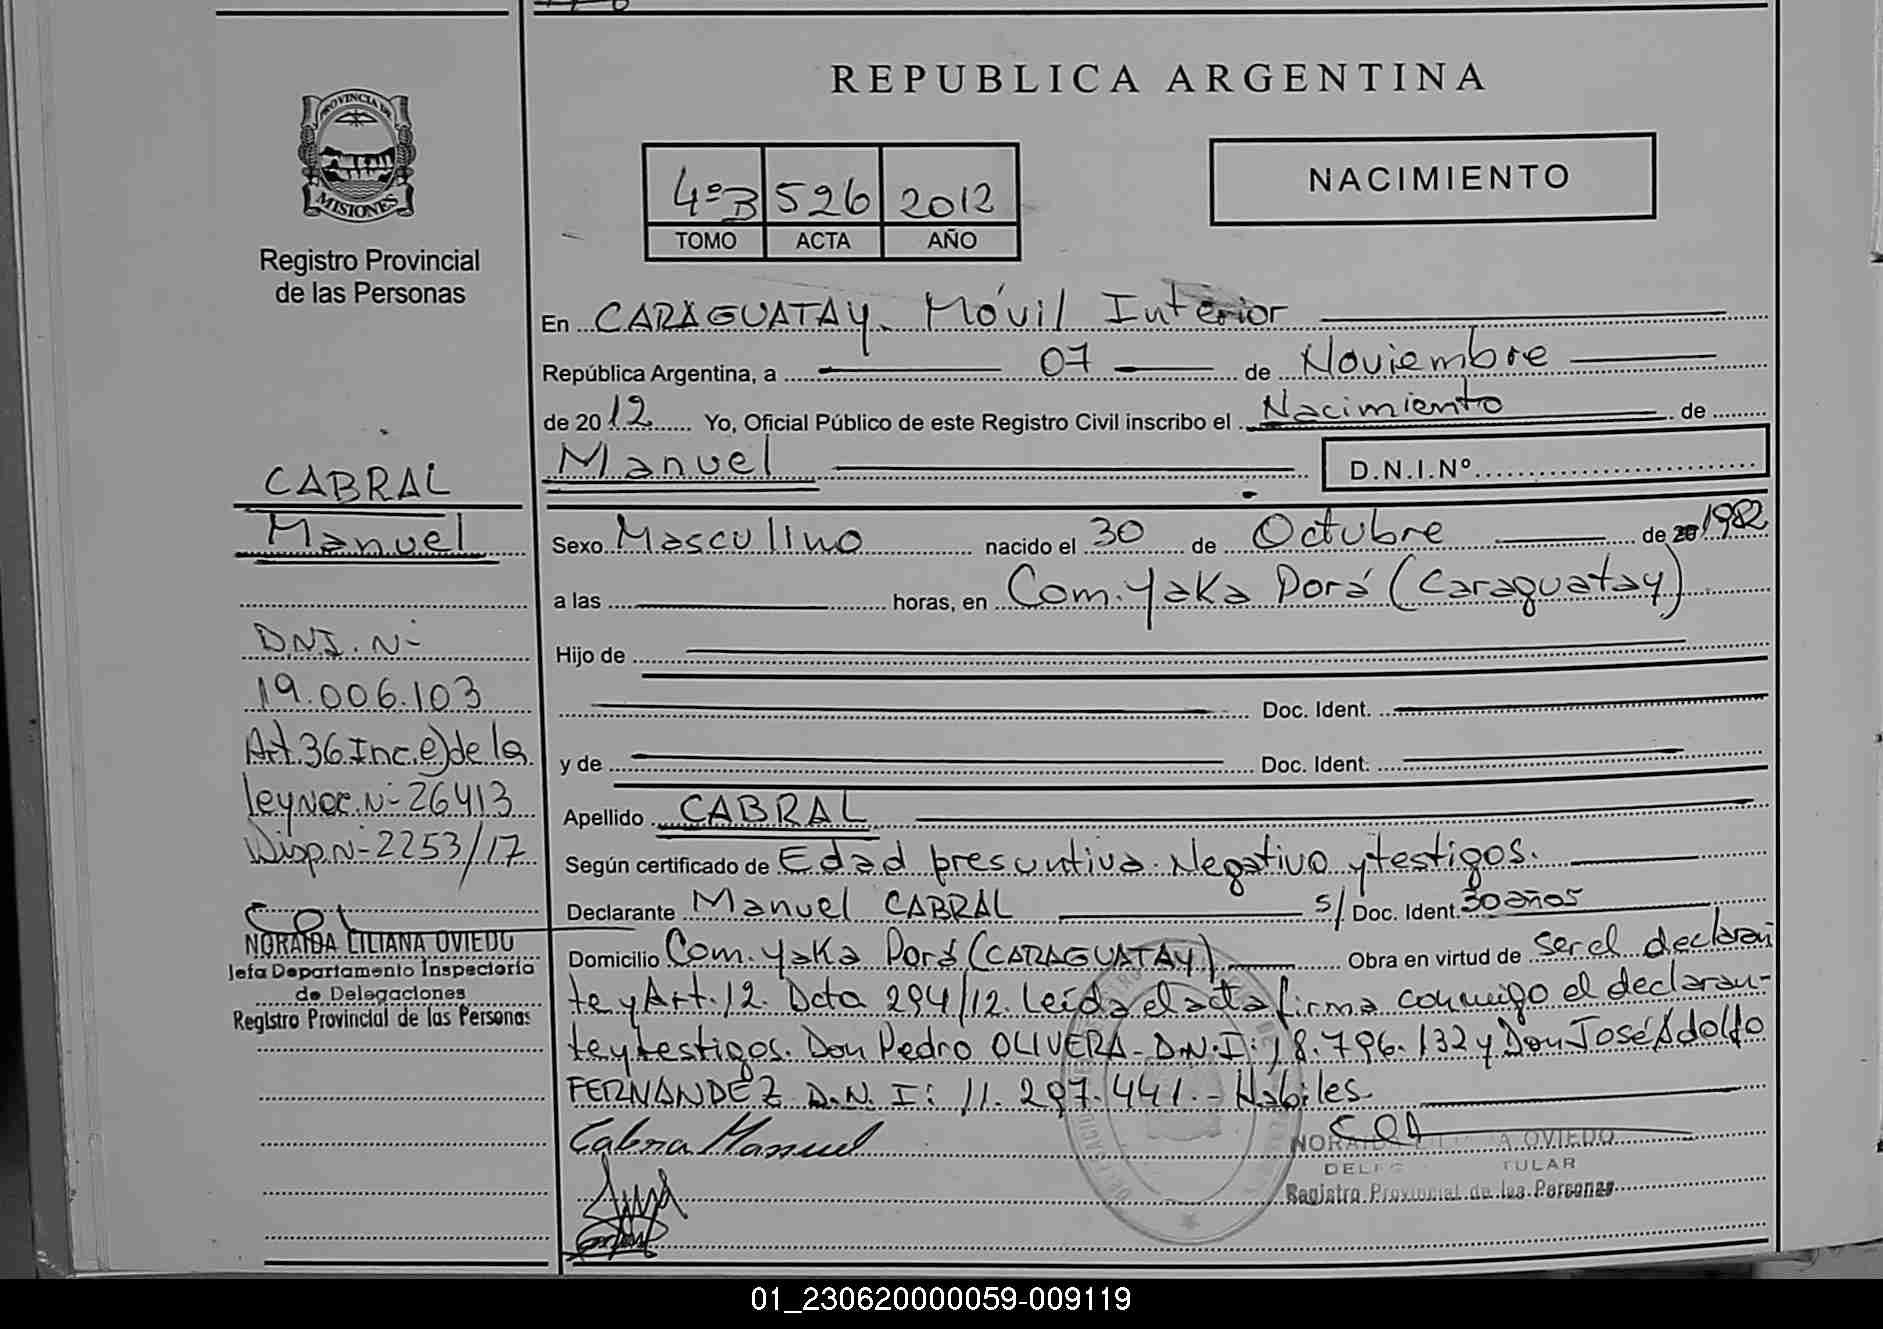 REPUBLICA ARGENTINA
PROVINCIA DE
MISIONES
Registro Provincial
de las Personas
4º B 526 2012
TOMO ACTA AÑO
NACIMIENTO
En CARAGUATAY. Móvil Interior
República Argentina, a 07 de Noviembre
de 2012 Yo, Oficial Público de este Registro Civil inscribo el Nacimiento de
Manuel D.N.I.Nº
Sexo Masculino nacido el 30 de Octubre de 20 1982
a las horas, en Com. Yaka Porá (Caraguatay)
Hijo de
Doc. Ident.
y de Doc. Ident.
Apellido CABRAL
Según certificado de Edad presuntiva. Negativo y testigos.
Declarante Manuel CABRAL S/ Doc. Ident. 30 años
Domicilio Com. Yaka Porá (CARAGUATAY) Obra en virtud de Ser el declaran
te y Art. 12. Dcto 294/12. Leída el acta firma conmigo el declaran-
te y testigos. Don Pedro OLIVERA - D.N.I: 18.796.132 y Don José Adolfo
FERNANDEZ D.N.I: 11.297.441.- Hábiles.
Cabral Manuel
NORAIDA LILIANA OVIEDO
Registro Provincial de las Personas
CABRAL
Manuel
D.N.I. Nº
19.006.103
Art. 36 Inc. e) de la
ley Nac. Nº 26413
Disp. Nº 2253/17
NORAIDA LILIANA OVIEDO
Jefa Departamento Inspectoría
de Delegaciones
Registro Provincial de las Personas
01_230620000059-009119